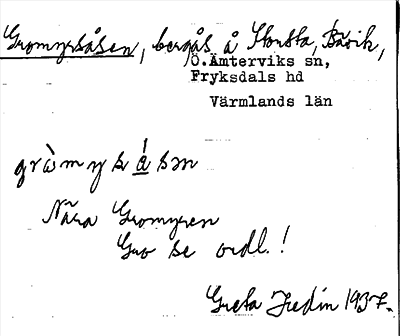 Gromyrsåsen, bergås å Stonsta, Bävik,
Ö.Ämterviks sn,
Fryksdals hd
Värmlands län
gròmyså̀sәn
Nära Gromyren
Gro se ordl.!
Greta Hedin 1937.